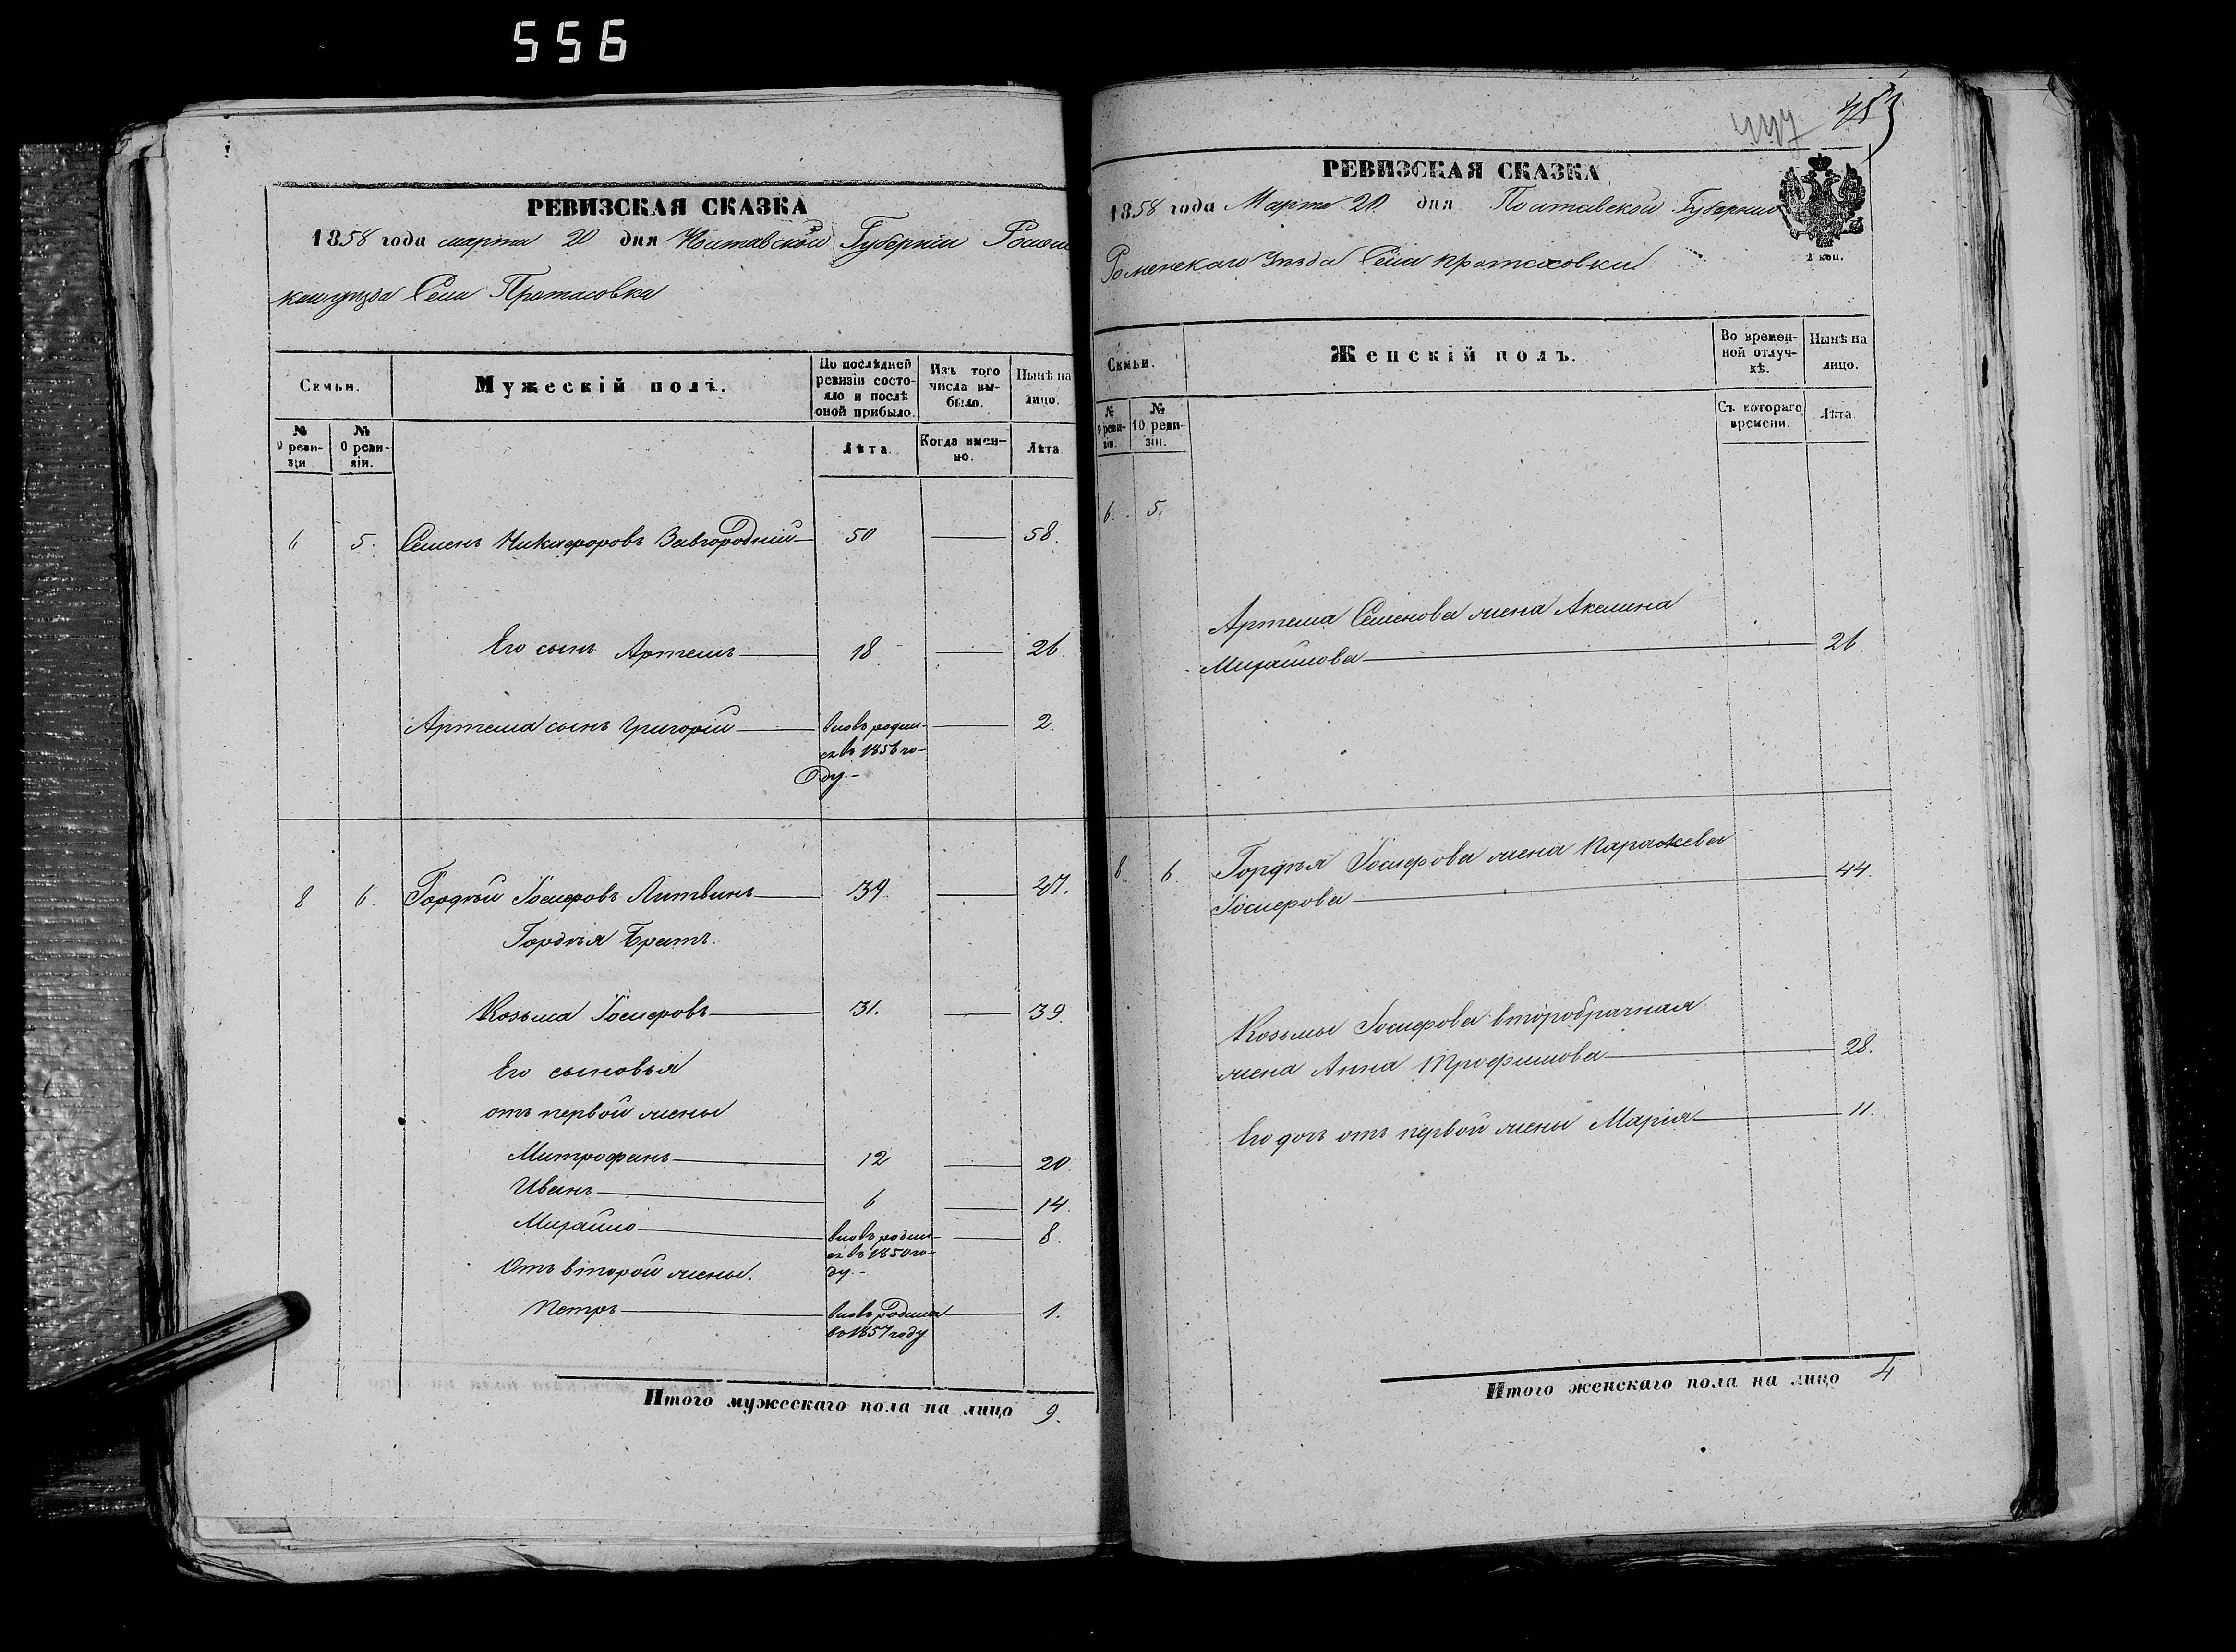 556
РЕВИЗСКАЯ СКАЗКА
1858 года марта 20 дня Полтавской Губерніи Ромен
каго уѣзда Села Протасовки
Семьи.
Мужескій полъ.
По послѣдней ревизіи состояло и послѣ оной прибыло.
Изъ того числа выбыло.
Нынѣ на лицо.
№ 9 ревизіи
№ 10 ревизіи.
Лѣта.
Когда именно.
Лѣта
6 5. Семенъ Никифоровъ Завгородній 50 58.
Его сынъ Артемъ 18 26.
Артема сынъ Григорій вновь родил- 2.
ся въ 1856 го-
ду.-
8 6. Гордѣй Іосифовъ Литвинъ 39. 47.
Гордѣя Братъ.
Козьма Іосифовъ 31. 39.
Его сыновья
отъ первой жены
Митрофанъ 12 20.
Иванъ 6 14.
Михайло вновь родил- 8.
ся въ 1850 го-
Отъ второй жены. ду.-
Петръ вновь родился 1.
въ 1857 году
Итого мужескаго пола на лицо 9.
447
453
РЕВИЗСКАЯ СКАЗКА
1858 года Марта 20 дня Полтавской Губерніи
2 коп.
Роменскаго Уѣзда Села Протасовки
Семьи.
Женскій полъ.
Во временной отлучкѣ.
Нынѣ на лицо.
№ 9 ревизіи.
№ 10 ревизіи.
Съ котораго времени.
Лѣта.
6. 5.
Артема Семенова жена Акелина
Михайлова 26.
8. 6. Гордѣя Іосифова жена Параскева
Іосифова 44.
Козьмы Іосифова второбрачная
жена Анна Трофимова 28.
Его дочь отъ первой жены Марія 11.
Итого женскаго пола на лицо 4